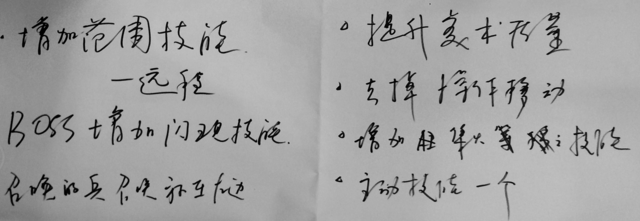 ·增加范围技能.
一远程
BOSS增加闪现技能.
召唤的兵召唤
。提升美术质量
。去掉操作移动
。增加 技能
。主动技能一个